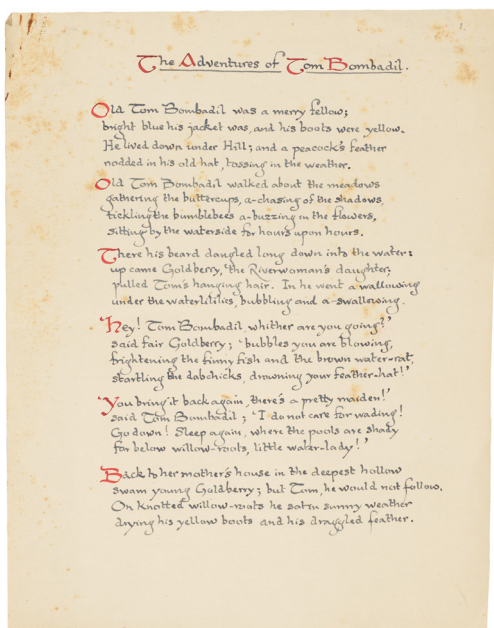 1.
The Adventures of Tom Bombadil.
Old Tom Bombadil was a merry fellow;
bright blue his jacket was, and his boots were yellow.
He lived down under Hill; and a peacock's feather
nodded in his old hat, tossing in the weather.
Old Tom Bombadil walked about the meadows
gathering the buttercups, a-chasing of the shadows,
tickling the bumblebees a-buzzing in the flowers,
sitting by the waterside for hours upon hours.
There his beard dangled long down into the water:
up came Goldberry, the Riverwoman's daughter;
pulled Tom's hanging hair. In he went a wallowing
under the waterlilies, bubbling and a-swallowing.
'Hey! Tom Bombadil, whither are you going?'
said fair Goldberry; 'bubbles you are blowing,
frightening the finny fish and the brown water-rat,
startling the dabchicks, drowning your feather-hat!'
'You bring it back again, there's a pretty maiden!'
said Tom Bombadil; 'I do not care for wading!
Go down! Sleep again, where the pools are shady
far below willow-roots, little water-lady!'
Back to her mother's house in the deepest hollow
swam young Goldberry; but Tom, he would not follow.
On knotted willow-roots he sat in sunny weather
drying his yellow boots and his draggled feather.